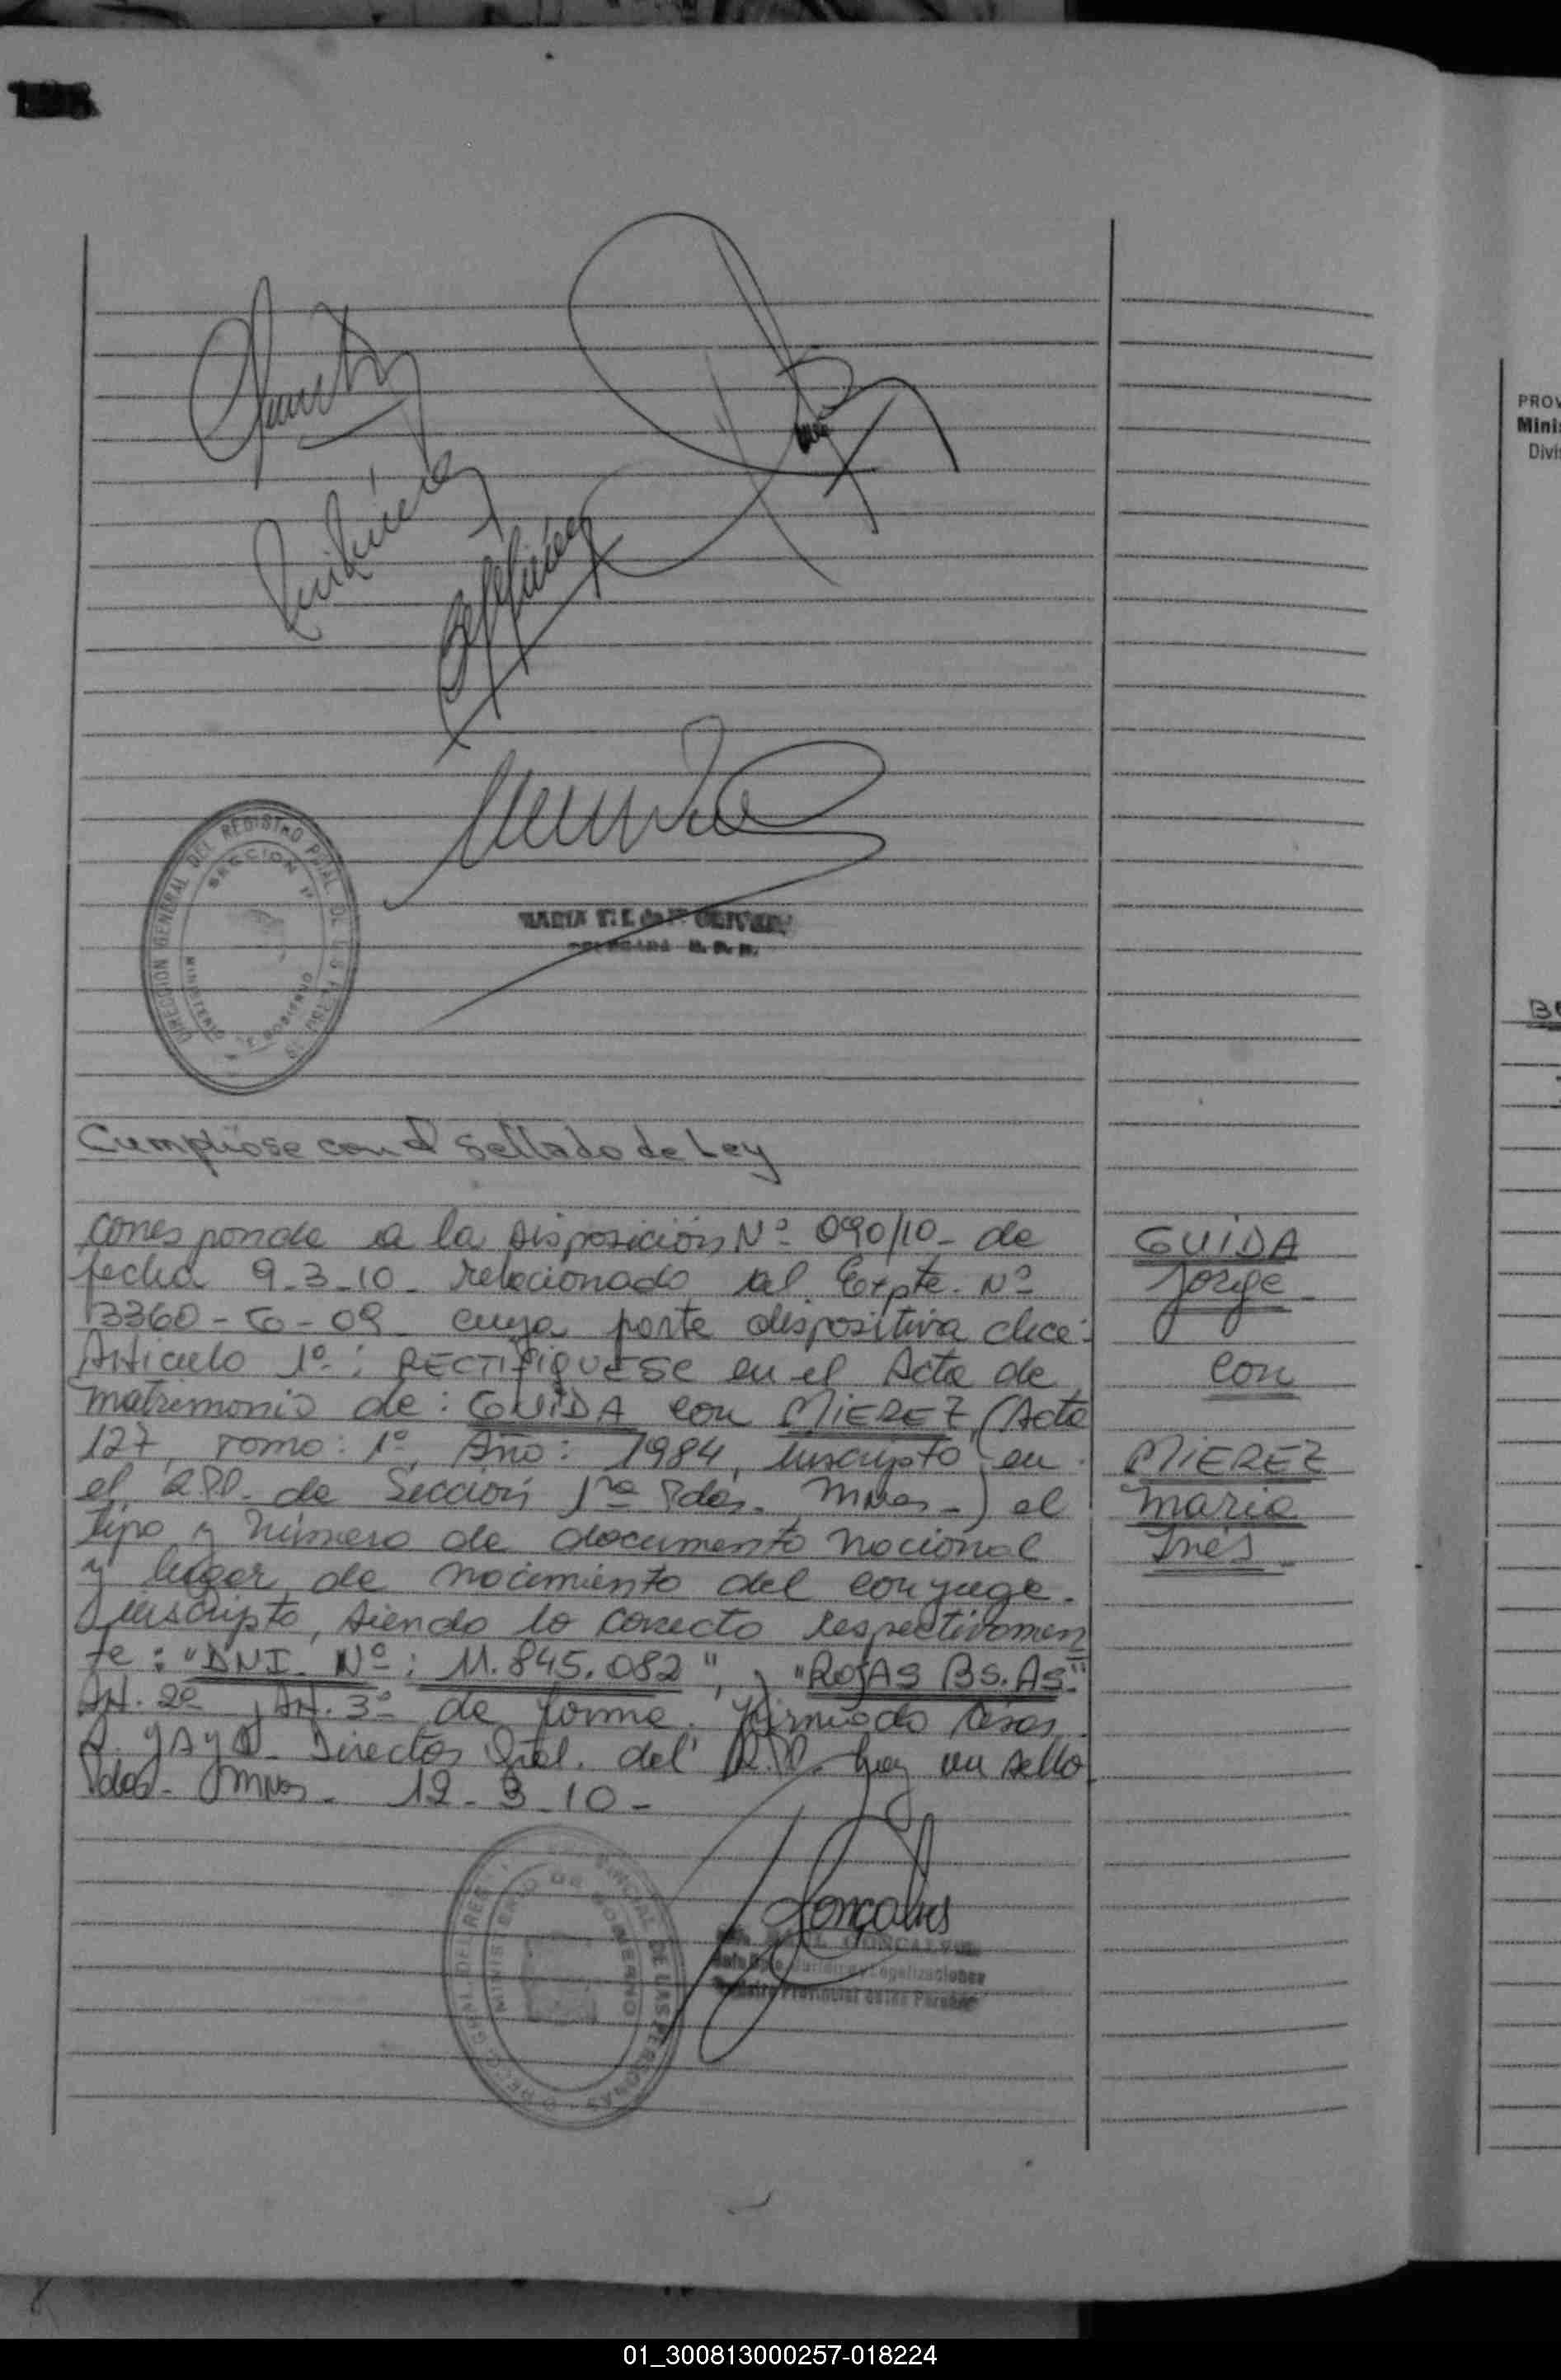 DIRECCION GENERAL DEL REGISTRO PCIAL DE LAS PERSONAS
SECCION 1ª
MINISTERIO DE GOBIERNO
DELEGADA R. P. P.
Cumpliose con el sellado de Ley
Corresponde a la Disposición Nº 090/10 - de
fecha 9-3-10 - relacionado al Expte. Nº
3360-G-09 cuya parte dispositiva dice:
Artículo 1º: RECTIFIQUESE en el Acta de
matrimonio de: GUIDA con MIEREZ, (Acta
127, Tomo: 1º, Año: 1984, inscripto en
el RPP. de Sección 1ra Pdas. Mnes -) el
tipo y número de documento nacional
y lugar de nacimiento del conyuge
inscripto, siendo lo correcto respectivamen
te: "DNI. Nº: 11.845.082", y "ROJAS BS. AS."
Art. 2º, Art. 3º de forma. Firmado
Director Gral. del R.P.P. hay un sello
Pdas. Mnes - 12-3-10 -
GUIDA
Jorge -
con
MIEREZ
Maria
Inés -
Goncalves
GONCALVES
Legalizaciones
Registro Provincial de las Personas
MINISTERIO DE GOBIERNO
PROV
Minis
Divis
01_300813000257-018224